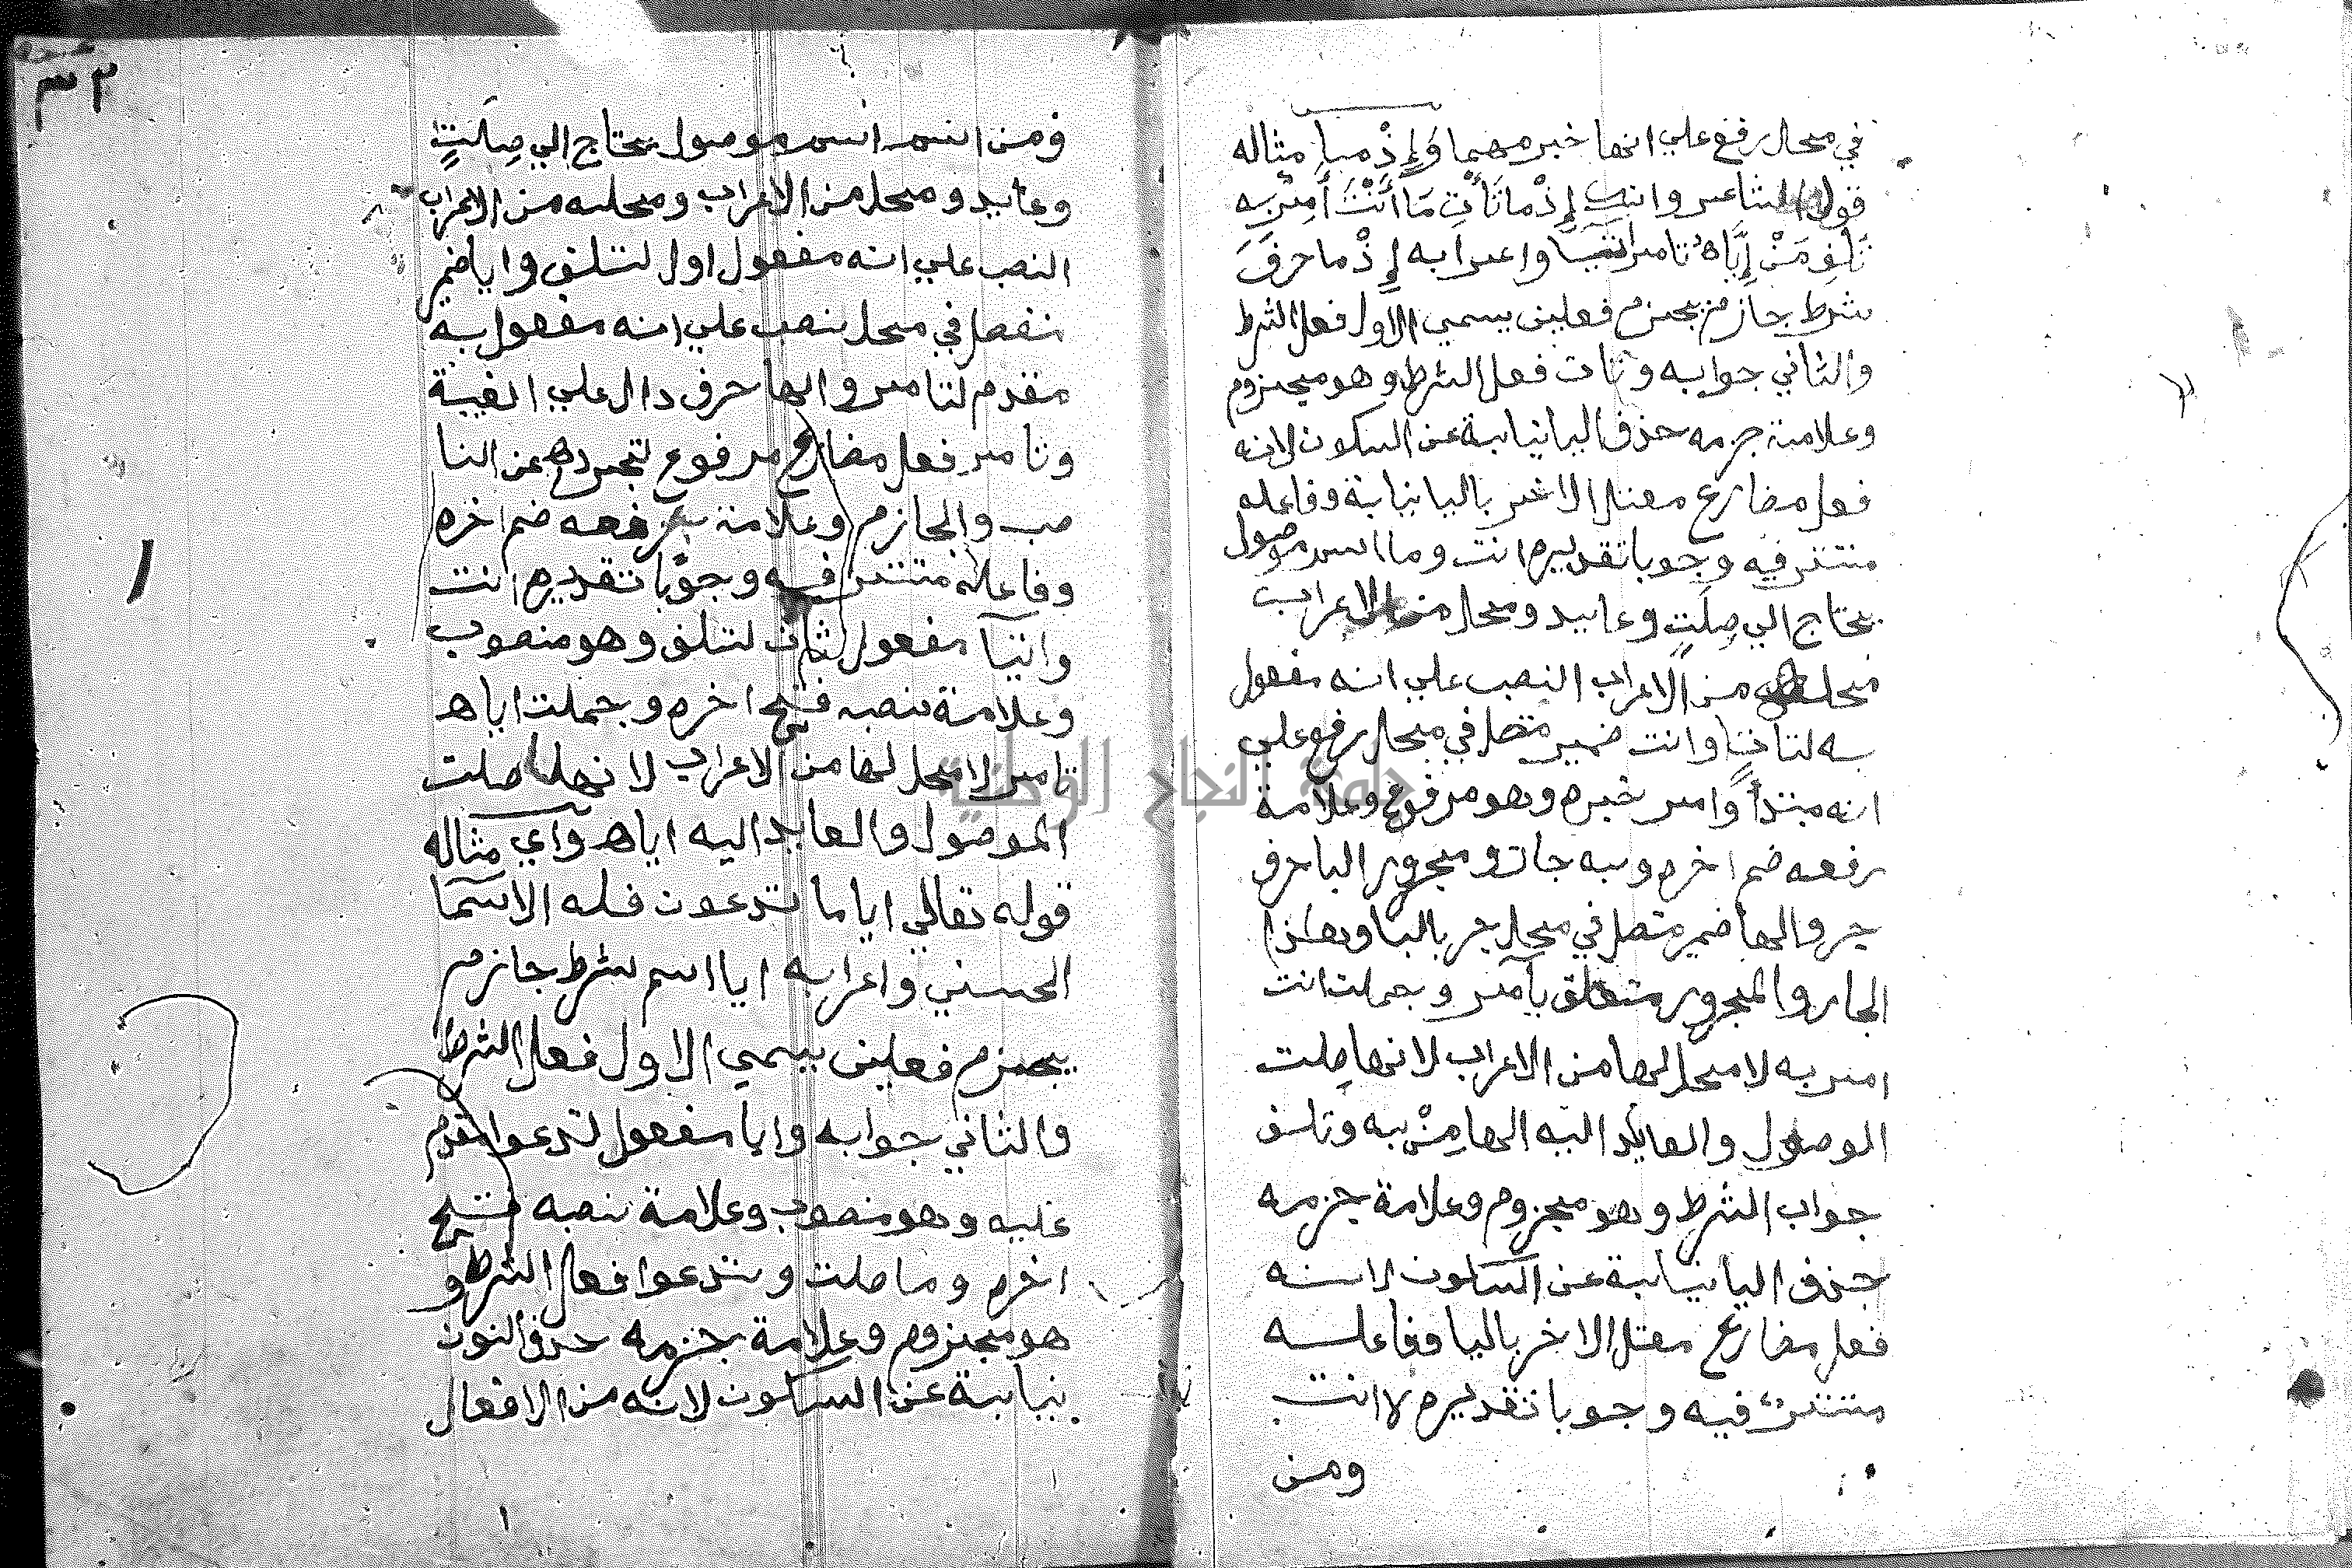 في محل رفع علي انها خبر مهما وَإِذْ ما مثاله
قول الشاعر وانك إِذْ ما تَأْتِ مَا أَنْتَ آمِرٌ بِهِ
تُلْفِ مَنْ إِيَّاهُ تامر اتيا واعرابه إِذْ ما حرف
شرط جازم يجزم فعلين يسمي الاول فعل الشرط
والثاني جوابه وتات فعل الشرط وهو مجزوم
وعلامة جزمه حذف اليا نيابية عن السكون لانه
فعل مضارع معتل الاخر باليا نيابة وفاعله
مستتر فيه وجوبا تقديره انت وما اسم موصول
يحتاج الي صِلَتٍ وعايد ومحل من الاعراب
محله من الاعراب النصب علي انه مفعول
به لتاتِ وانت ضمير منفصل في محل رفع علي
انه مبتدأ وامر خبره وهو مرفوع وعلامة
رفعه ضم اخره وبه جار ومجرور البا حرف
جر والها ضمير متصل في محل جر بالبا وهذا
الجار والمجرور متعلق بآمر وجملت انت
امر به لا محل لها من الاعراب لانها صِلت
الموصول والعايد اليه الها مِنْ به وتلف
جواب الشرط وهو مجزوم وعلامة جزمه
حذف اليا نيابية عن السكون لانه
فعل مضارع معتل الاخر باليا وفاعله
مستتر فيه وجوبا تقديره انت
ومن
٣٢
ومن اسم اسم موصول يحتاج الي صِلَتٍ
وعايد ومحل من الاعراب ومحله من الاعراب
النصب علي انه مفعول اول لتلف وايا ضمير
منفصل في محل نصب علي انه مفعول به
مقدم لتامر والها حرف دال علي الغيبة
وتامر فعل مضارع مرفوع لتجرده عن النا
صب والجازم وعلامة رفعه ضم اخره
وفاعله مستتر فيه وجوبا تقديره انت
واتيا مفعول ثان لتلف وهو منصوب
وعلامة نصبه فتح اخره وجملت اياه
تامر لا محل لها من الاعراب لانها صلت
الموصول والعايد اليه اياه وأي مثاله
قوله تعالي ايا ما تدعون فله الاسما
الحسني واعرابه ايا اسم شرط جازم
يجزم فعلين يسمي الاول فعل الشرط
والثاني جوابه وايا مفعول لتدعوا مقدم
عليه وهو منصوب وعلامة نصبه فتح
اخره وما صلت وتدعوا فعل الشرط و
هو مجزوم وعلامة جزمه حذف النون
نيابية عن السكون لانه من الافعال
جامعة النجاح الوطنية